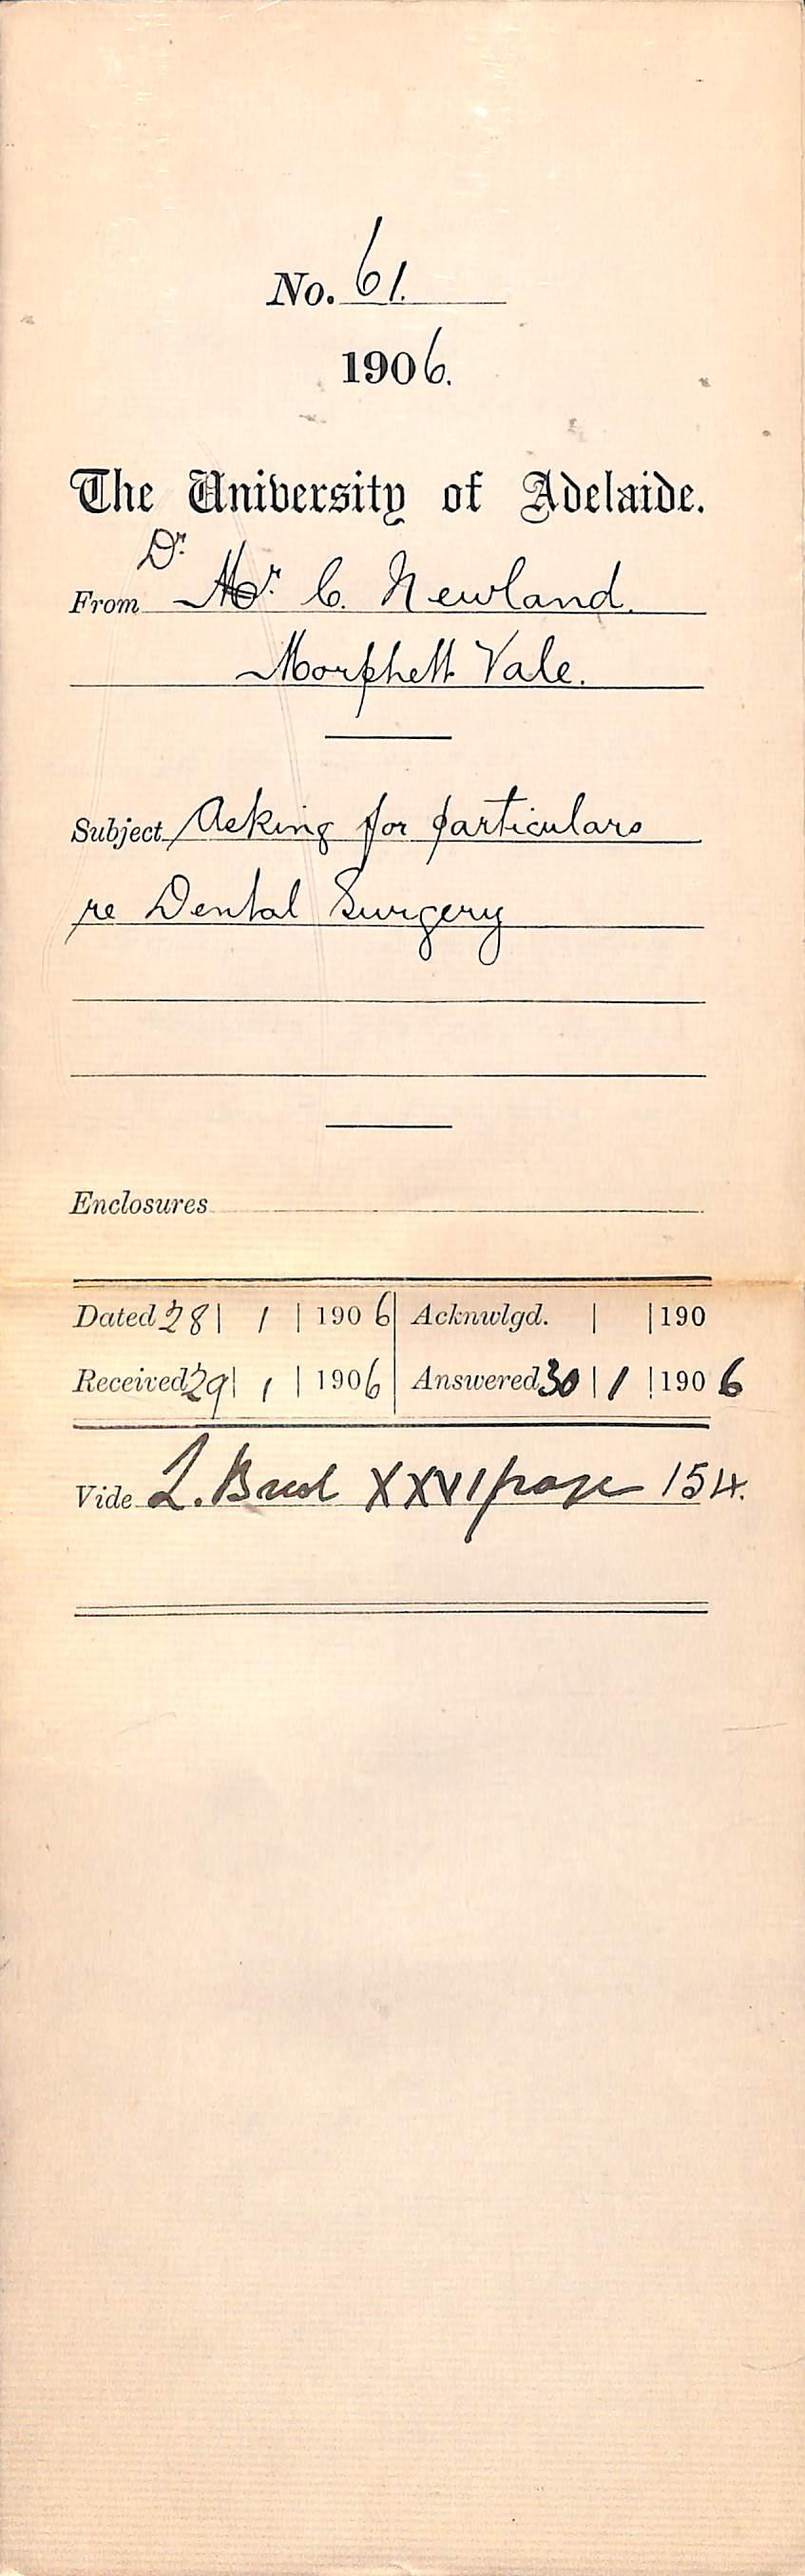 No. 61.
1906.
The University of Adelaide.
Dr.
From Mr. C. Newland.
Morphett Vale.
Subject Asking for particulars
re Dental Surgery
Enclosures
Dated 28 | 1 | 1906 Acknwlgd. | | 190
Received 29 | 1 | 1906 Answered 30 | 1 | 1906
Vide L. Book XXVI page 154.